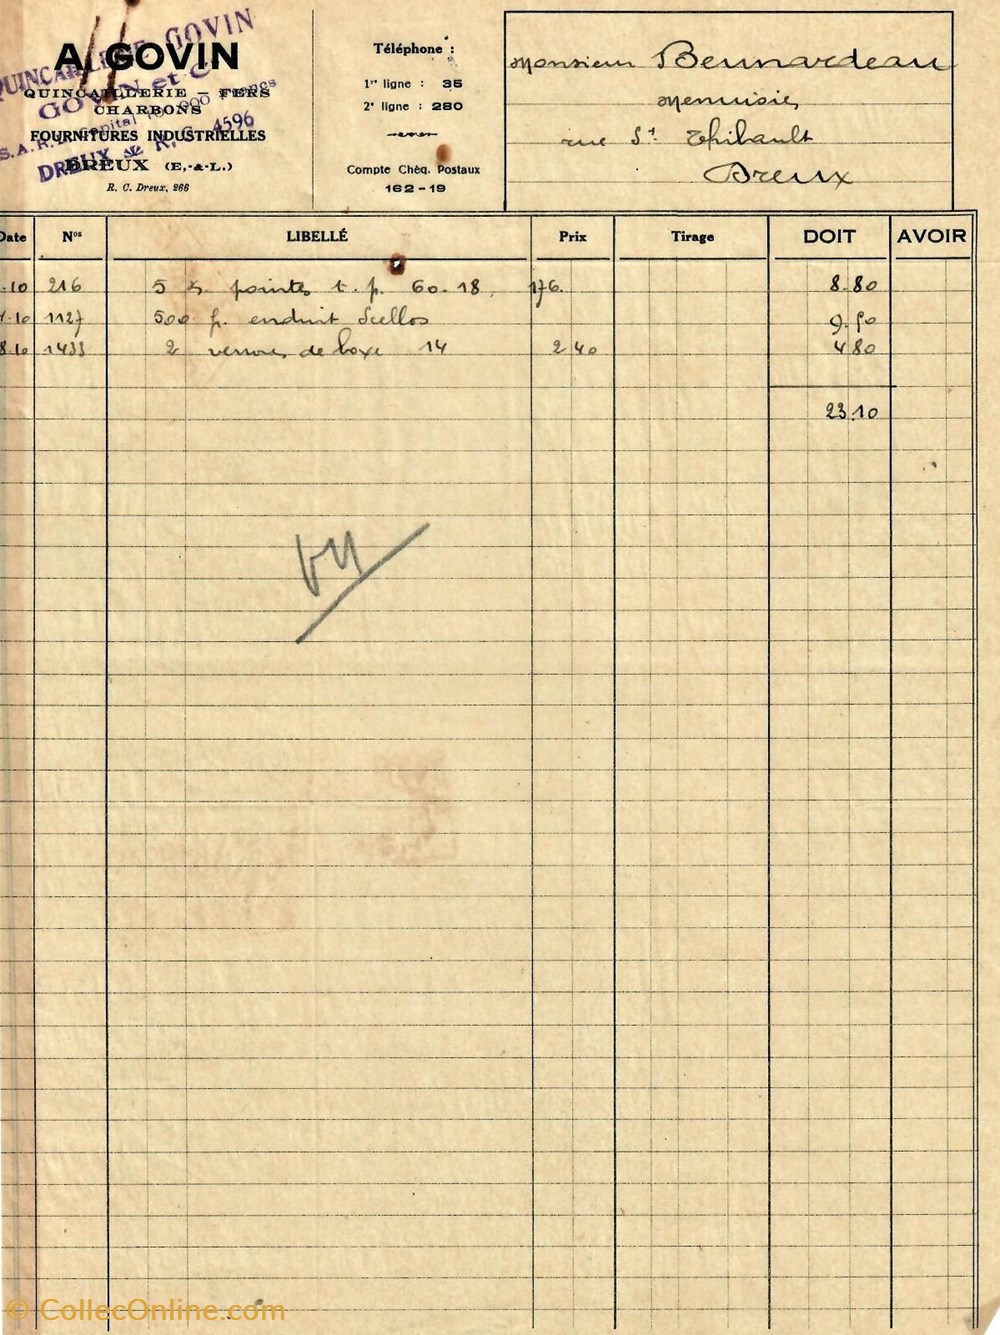 A. GOVIN
QUINCAILLERIE — FERS
CHARBONS
FOURNITURES INDUSTRIELLES
DREUX (E.-&-L.)
R. C. Dreux, 266
QUINCAILLERIE GOVIN
GOVIN et C
S.A.R.L. Capital 000 francs
DREUX R. C. 4596
Téléphone :
1re ligne : 35
2e ligne : 280
Compte Chèq. Postaux
162-19
Monsieur Beunardeau
Menuisier
rue St Thibault
Dreux
Date Nos LIBELLÉ Prix Tirage DOIT AVOIR
.10 216 5 k. pointes t. p. 60-18 176. 8.80
.10 1127 500 enduit 9.50
8.10 1433 2 verrous de boxe 14 2 40 4 80
23.10
© CollecOnline.com